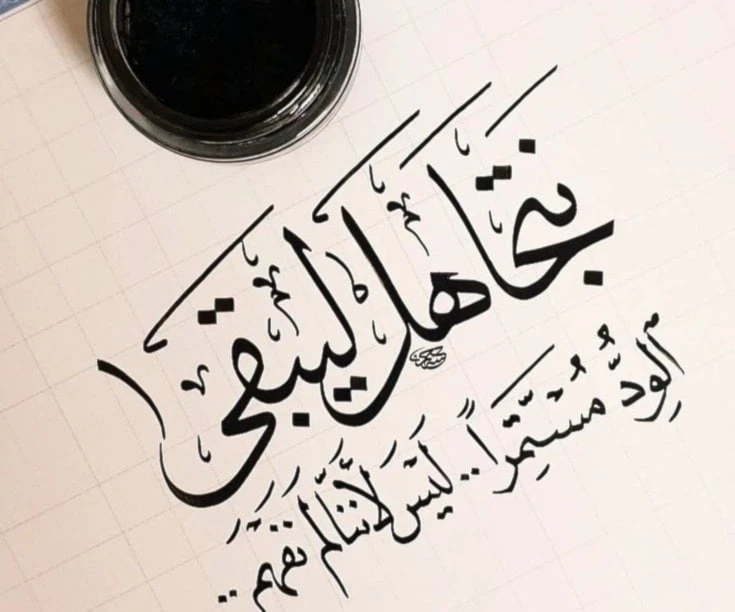 نتجاهل ليبقى
الودُّ مُستمِّراً.. ليَس لأَننا لَم نَفهَم..